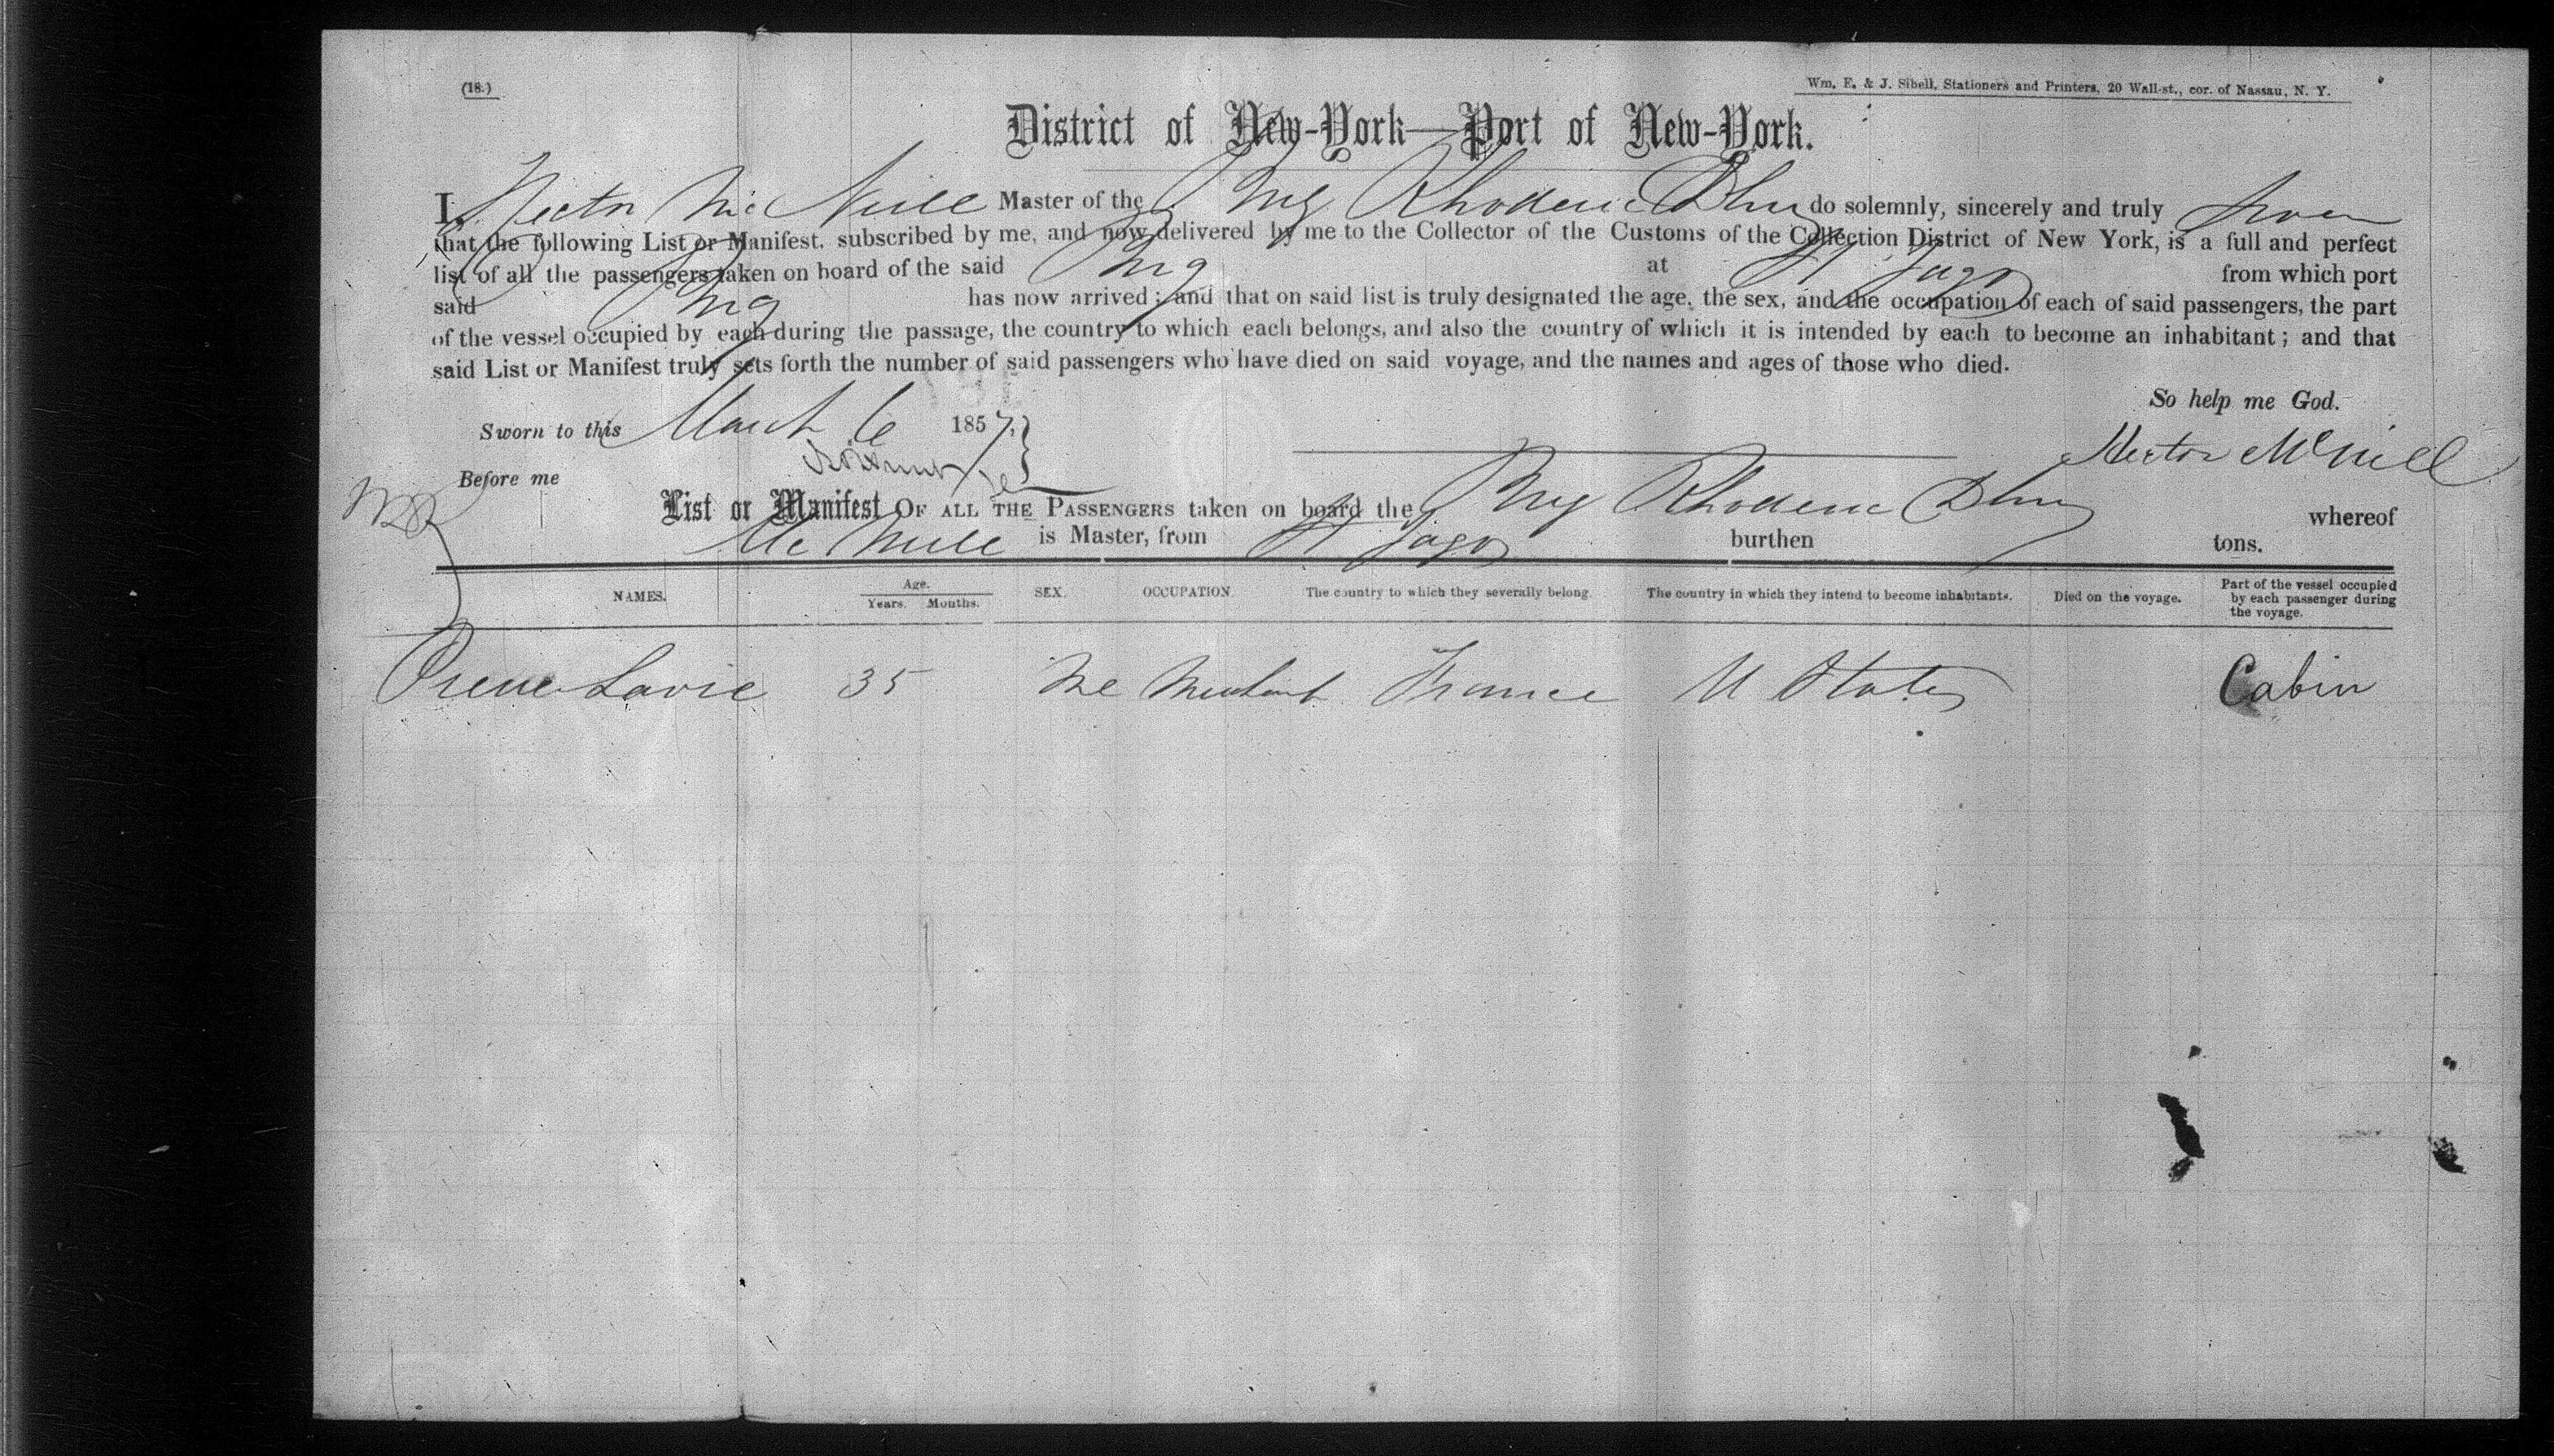 (18.)
Wm. E. & J. Sibell, Stationers and Printers, 20 Wall-st., cor. of Nassau, N. Y.
District of New-York—Port of New-York.
I, Hector McNeill Master of the Brig Rhoderic Dhu do solemnly, sincerely and truly swear
that the following List or Manifest, subscribed by me, and now delivered by me to the Collector of the Customs of the Collection District of New York, is a full and perfect
list of all the passengers taken on board of the said Brig at St Jago from which port
said Brig has now arrived; and that on said list is truly designated the age, the sex, and the occupation of each of said passengers, the part
of the vessel occupied by each during the passage, the country to which each belongs, and also the country of which it is intended by each to become an inhabitant; and that
said List or Manifest truly sets forth the number of said passengers who have died on said voyage, and the names and ages of those who died.
So help me God.
Sworn to this March 6 1857,
Hector McNeill
Before me
List or Manifest OF ALL THE PASSENGERS taken on board the Brig Rhoderic Dhu whereof
McNeill is Master, from St Jago burthen tons.
NAMES. Age. Years. Months. SEX. OCCUPATION. The country to which they severally belong. The country in which they intend to become inhabitants. Died on the voyage. Part of the vessel occupied by each passenger during the voyage.
Lavie 35 Me Merchant France U States Cabin